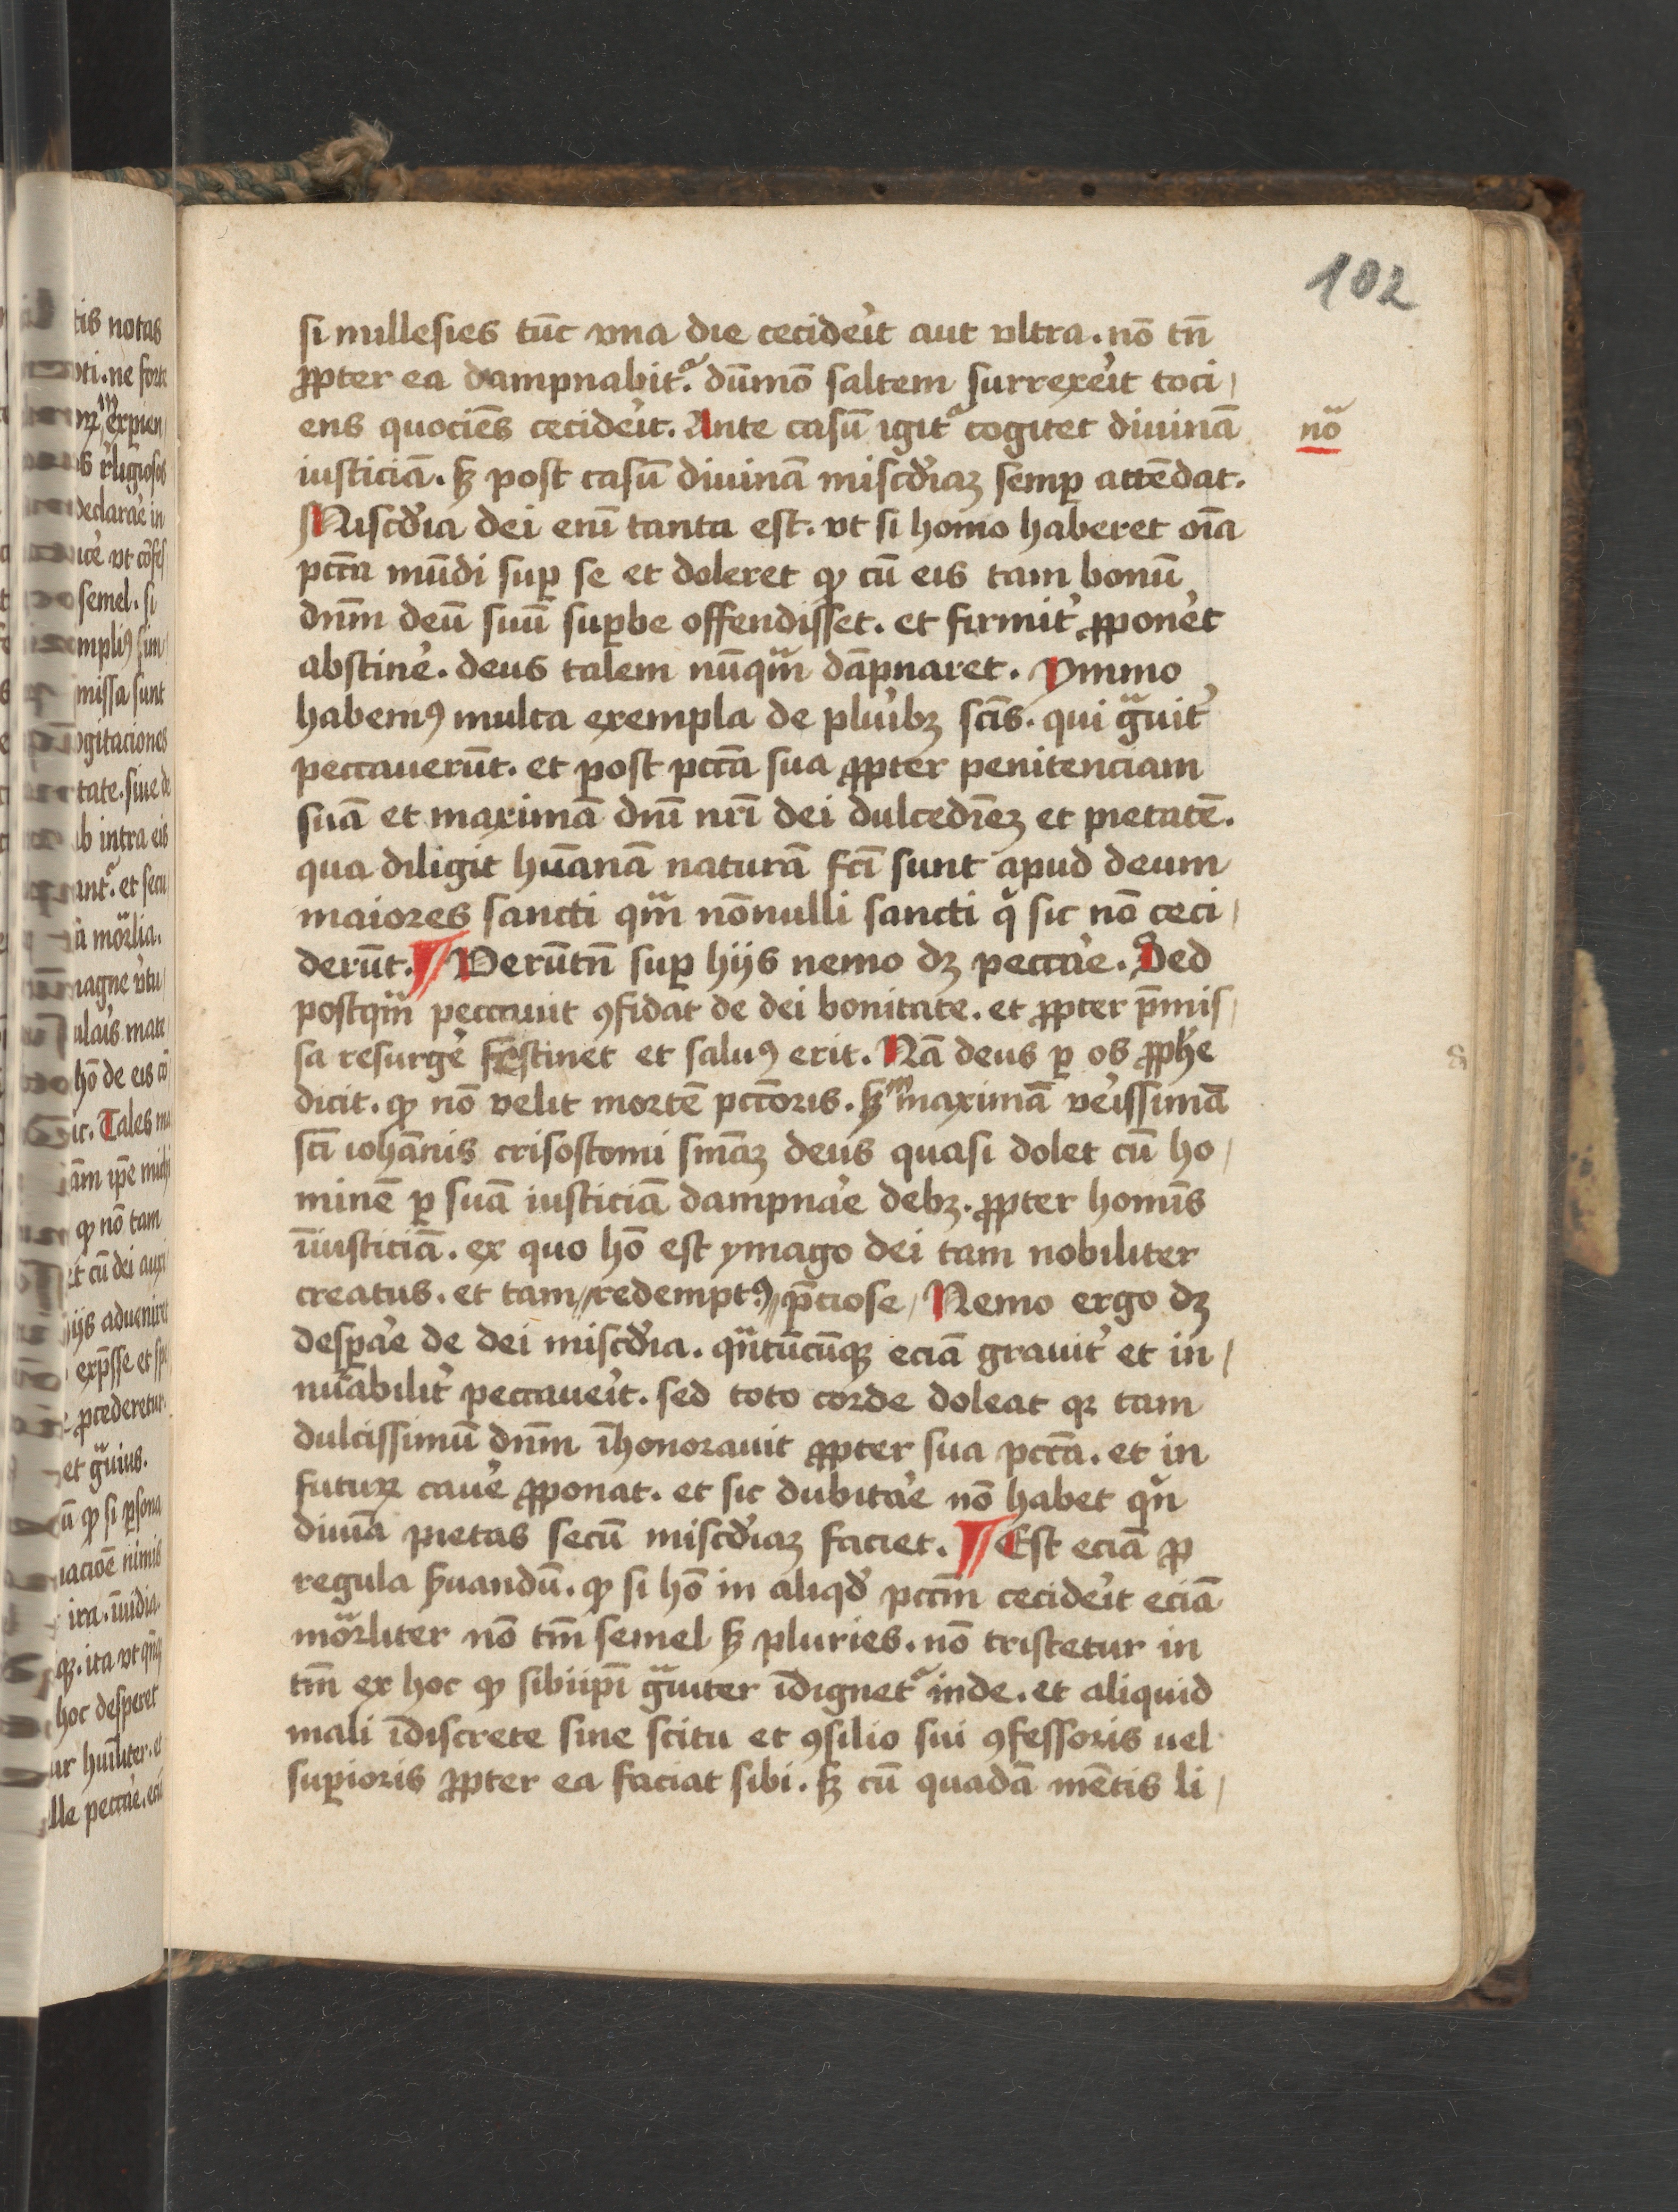 102
si millesies tūc vna die cecideı̓t aut vltra. nō tn̄
ꝓpter ea dampnabitᷓ. dūmō saltem surrexeı̓t toci/
ens quociēs cecideı̓t. Ante casū igitᷓ cogitet diuinā
noᷓ
iusticiā. sꝫ post casū diuinā miscďiaꝫ semꝑ attēdat.
Miscďia dei enī tanta est. vt si homo haberet oīa
pctā mūdi suꝑ se et doleret ꝙ cū eis tam bonū
dnm̄ deū suū suꝑbe offendisset. et firmit̓ ꝓponet̓
abstine̓. deus talem nūqᷓm dāpnaret. Ymmo
habemꝰ multa exempla de pluı̓bꝫ sctı̄s. qui gᷓuit̓
peccauerūt. et post pctā sua ꝓpter penitenciam
suā et maximā dnı̄ nrı̄ dei dulcedīeꝫ et pietatē.
qua diligit hūanā naturā fctı̄ sunt apud deum
maiores sancti qᷓm nōnulli sancti qͥ sic nō ceci/
derūt. ¶ Verūtn̄ suꝑ hijs nemo dꝫ pecca̓e. Sed
postqᷓm peccauit ꝯfidat de dei bonitate. et ꝓpter p̄mis/
sa resurge̓ festinet et saluꝰ erit. Nā deus ꝑ os ꝓphe̓
dicit. ꝙ nō velit mortē pctōris. sꝫ ᵐmaximā ve̓issimā
sctı̄ iohānis crisostomi smāꝫ deus quasi dolet cū ho/
minē ꝑ suā iusticiā dampna̓e debꝫ. ꝓpter homīs
īiusticiā. ex quo hō est ymago dei tam nobiliter
creatus. et tam//redemptꝰ//p̄ciose/ Nemo ergo dꝫ
desꝑa̓e de dei miscďia. qᷓntūcūqꝫ eciā grauit̓ et in/
nūabilit̓ peccaueı̓t. sed toto corde doleat qꝛ tam
dulcissimū dnm̄ īhonorauit ꝓpter sua pctā. et in
futuꝝ caue̓ ꝓponat. et sic dubita̓e nō habet qͥn
diuīa pietas secū miscďiaꝫ faciet. ¶ Est eciā ꝓ
regula ẜuandū. ꝙ si hō in aliqď pctm̄ cecideı̓t eciā
moᷓrliter nō tm̄ semel sꝫ pluries. nō tristetur in
tm̄ ex hoc ꝙ sibiipı̄ gᷓuiter īdignetᷓ inde. et aliquid
mali īdiscrete sine scitu et ꝯsilio sui ꝯfessoris uel
suꝑioris ꝓpter ea faciat sibi. sꝫ cū quadā mētis li/